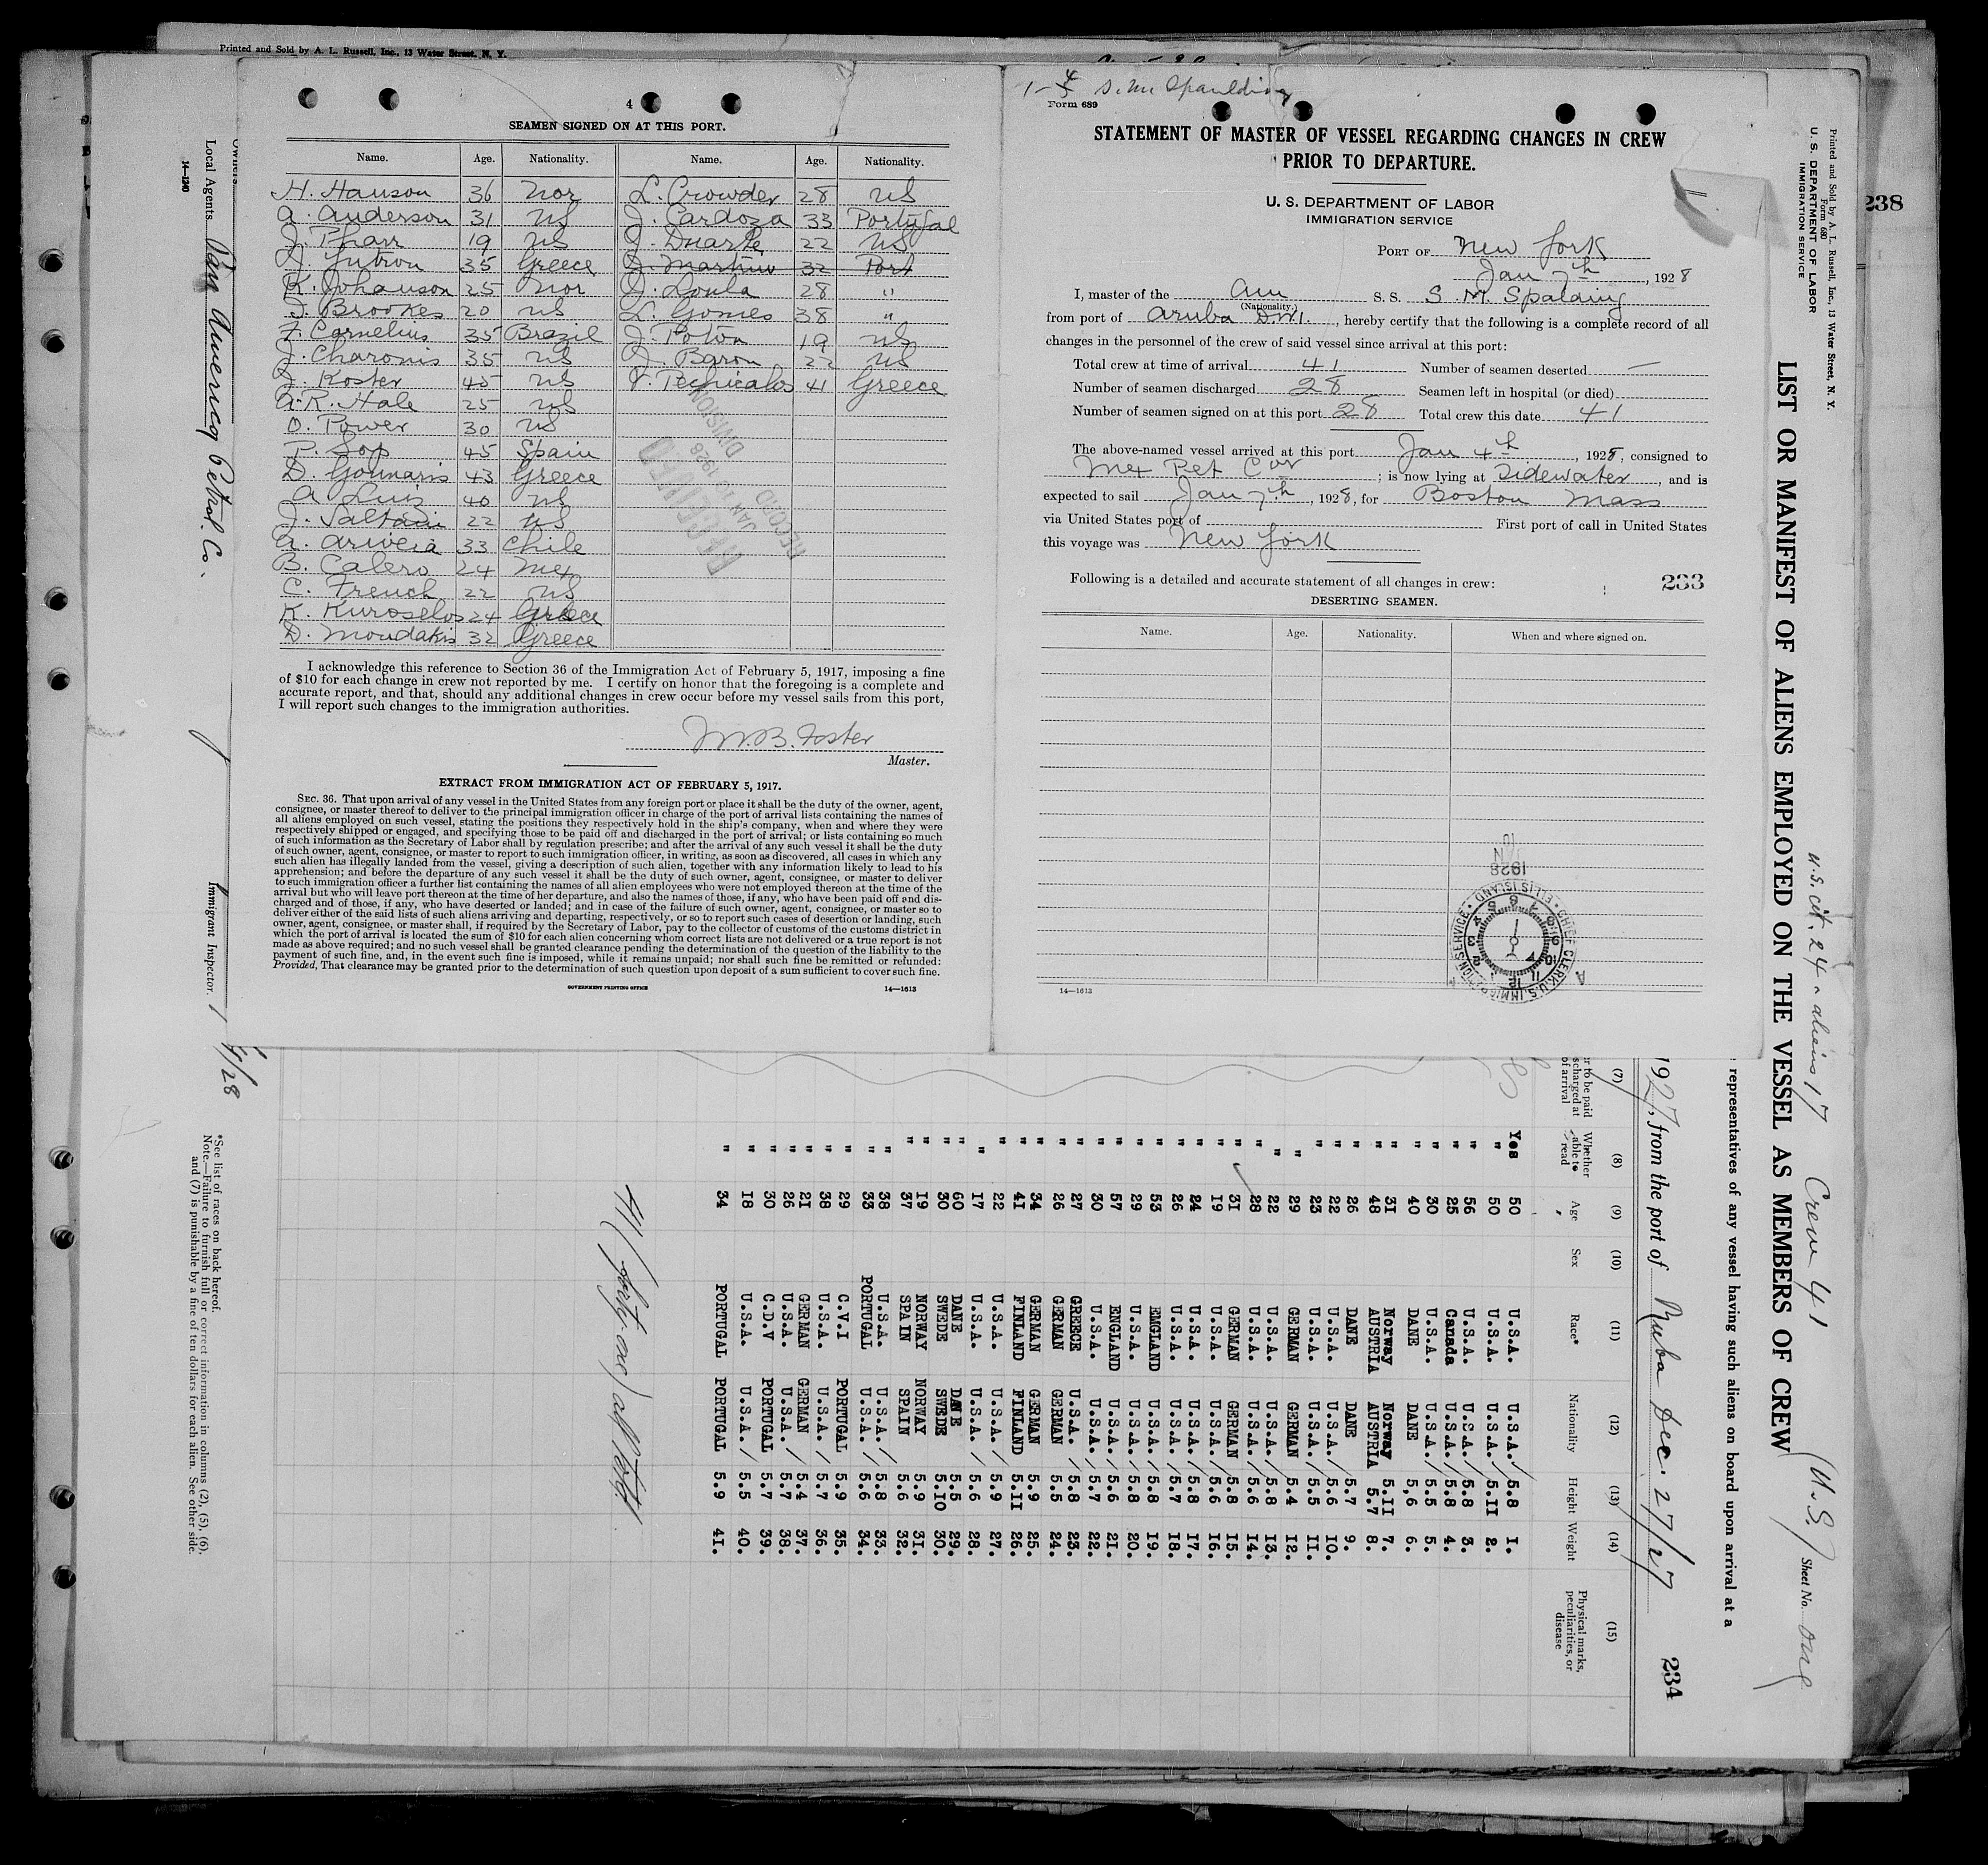 Printed and Sold by A. L. Russell, Inc., 13 Water Street, N. Y.
4
SEAMEN SIGNED ON AT THIS PORT.
Name. Age. Nationality. Name. Age. Nationality.
H. Hanson 36 Nor L. Crowder 28 US
A. Anderson 31 US J. Cardoza 33 Portugal
J. Pharr 19 US J. Duarte 22 US
J. 35 Greece J. Martino 32 Port
K. Johanson 25 Nor J. Loula 28 "
J. Brookes 20 US L. Gomes 38 "
F. Cornelius 35 Brazil J. 19 US
J. Charonis 35 US J. Baron 22 US
J. Koster 45 US 41 Greece
A. R. Hale 25 US
O. Power 30 US
P. Sop 45 Spain
D. Gounaris 43 Greece
A. Luiz 40 US
J. 22 US
A. 33 Chile
B. Calero 24 Mex
C. French 22 US
K. Kuroselos 24 Greece
D. Moudakis 32 Greece
RECEIVED
JAN 10 1928
RECORD DIVISION
I acknowledge this reference to Section 36 of the Immigration Act of February 5, 1917, imposing a fine
of $10 for each change in crew not reported by me. I certify on honor that the foregoing is a complete and
accurate report, and that, should any additional changes in crew occur before my vessel sails from this port,
I will report such changes to the immigration authorities.
M. B. Foster
Master.
EXTRACT FROM IMMIGRATION ACT OF FEBRUARY 5, 1917.
SEC. 36. That upon arrival of any vessel in the United States from any foreign port or place it shall be the duty of the owner, agent,
consignee, or master thereof to deliver to the principal immigration officer in charge of the port of arrival lists containing the names of
all aliens employed on such vessel, stating the positions they respectively hold in the ship's company, when and where they were
respectively shipped or engaged, and specifying those to be paid off and discharged in the port of arrival; or lists containing so much
of such information as the Secretary of Labor shall by regulation prescribe; and after the arrival of any such vessel it shall be the duty
of such owner, agent, consignee, or master to report to such immigration officer, in writing, as soon as discovered, all cases in which any
such alien has illegally landed from the vessel, giving a description of such alien, together with any information likely to lead to his
apprehension; and before the departure of any such vessel it shall be the duty of such owner, agent, consignee, or master to deliver
to such immigration officer a further list containing the names of all alien employees who were not employed thereon at the time of the
arrival but who will leave port thereon at the time of her departure, and also the names of those, if any, who have been paid off and dis-
charged and of those, if any, who have deserted or landed; and in case of the failure of such owner, agent, consignee, or master so to
deliver either of the said lists of such aliens arriving and departing, respectively, or so to report such cases of desertion or landing, such
owner, agent, consignee, or master shall, if required by the Secretary of Labor, pay to the collector of customs of the customs district in
which the port of arrival is located the sum of $10 for each alien concerning whom correct lists are not delivered or a true report is not
made as above required; and no such vessel shall be granted clearance pending the determination of the question of the liability to the
payment of such fine, and, in the event such fine is imposed, while it remains unpaid; nor shall such fine be remitted or refunded:
Provided, That clearance may be granted prior to the determination of such question upon deposit of a sum sufficient to cover such fine.
GOVERNMENT PRINTING OFFICE 14—1613
1-4 S. M. Spaulding
Form 689
STATEMENT OF MASTER OF VESSEL REGARDING CHANGES IN CREW
PRIOR TO DEPARTURE.
U. S. DEPARTMENT OF LABOR
IMMIGRATION SERVICE
PORT OF New York
Jan 7th, 1928
I, master of the Am S. S. S M Spalding
(Nationality.)
from port of Aruba D.W.I., hereby certify that the following is a complete record of all
changes in the personnel of the crew of said vessel since arrival at this port:
Total crew at time of arrival 41 Number of seamen deserted —
Number of seamen discharged 28 Seamen left in hospital (or died)
Number of seamen signed on at this port 28 Total crew this date 41
The above-named vessel arrived at this port Jan 4th, 1928, consigned to
Mex Pet Cor; is now lying at Tidewater, and is
expected to sail Jan 7th, 1928, for Boston Mass
via United States port of First port of call in United States
this voyage was New York
Following is a detailed and accurate statement of all changes in crew: 233
DESERTING SEAMEN.
Name. Age. Nationality. When and where signed on.
JAN 10 1928
CHIEF CLERK, U. S. IMMIGRATION SERVICE ELLIS ISLAND
14—1613
238
Printed and Sold by A. L. Russell, Inc., 13 Water Street, N. Y.
Form 680
U. S. DEPARTMENT OF LABOR
IMMIGRATION SERVICE
U.S. cit. 24 - aliens 17 Crew 41 (U.S.) Sheet No. One
LIST OR MANIFEST OF ALIENS EMPLOYED ON THE VESSEL AS MEMBERS OF CREW
representatives of any vessel having such aliens on board upon arrival at a
1927, from the port of Aruba Dec. 27/27 234
(7) (8) (9) (10) (11) (12) (13) (14) (15)
er to be paid scharged at of arrival Whether able to read Age Sex Race* Nationality Height Weight Physical marks, peculiarities, or disease
Yes 50 U.S.A. U.S.A. 5.8 1.
" 50 U.S.A. U.S.A. 5.II 2.
" 56 U.S.A. U.S.A. 5.8 3.
" 25 Canada U.S.A. 5.8 4.
" 30 U.S.A. U.S.A. 5.5 5.
" 40 DANE DANE 5,6 6.
" 3I Norway Norway 5.II 7.
" 48 AUSTRIA AUSTRIA 5.7 8.
" 26 DANE DANE 5.7 9.
" 22 U.S.A. U.S.A. 5.6 10.
" 23 U.S.A. U.S.A. 5.5 II.
" 29 GERMAN GERMAN 5.4 12.
" 22 U.S.A. U.S.A. 5.8 13.
" 28 U.S.A. U.S.A. 5.6 14.
" 3I GERMAN GERMAN 5.8 15.
" 19 U.S.A. U.S.A. 5.6 16.
" 24 U.S.A. U.S.A. 5.8 17.
" 26 U.S.A. U.S.A. 5.7 18.
" 53 EMGLAND U.S.A. 5.8 19.
" 29 U.S.A. U.S.A. 5.8 20.
" 57 ENGLAND U.S.A. 5.6 21.
" 30 U.S.A. U.S.A. 5.7 22.
" 27 GREECE U.S.A. 5.8 23.
" 26 GERMAN GERMAN 5.5 24.
" 34 GERMAN GERMAN 5.9 25.
" 4I FINLAND FINLAND 5.II 26.
" 22 U.S.A. U.S.A. 5.9 27.
" I7 U.S.A. U.S.A. 5.6 28.
" 60 DANE DANE 5.5 29.
" 30 SWEDE SWEDE 5.IO 30.
" 19 NORWAY NORWAY 5.9 31.
" 37 SPAIN SPAIN 5.6 32.
" 38 U.S.A. U.S.A. 5.8 33.
" 33 PORTUGAL U.S.A. 5.6 34.
" 29 C.V.I PORTUGAL 5.9 35.
" 38 U.S.A. U.S.A. 5.7 36.
" 2I GERMAN GERMAN 5.4 37.
" 26 U.S.A. U.S.A. 5.7 38.
" 30 C.D.V PORTUGAL 5.7 39.
" I8 U.S.A. U.S.A. 5.5 40.
" 34 PORTUGAL PORTUGAL 5.9 4I.
41 (forty one) all told.
Owners
Local Agents Pan American Petrol. Co. Immigrant Inspector.
14—1240
4/28
*See list of races on back hereof.
Note.—Failure to furnish full or correct information in columns (2), (5), (6),
and (7) is punishable by a fine of ten dollars for each alien. See other side.